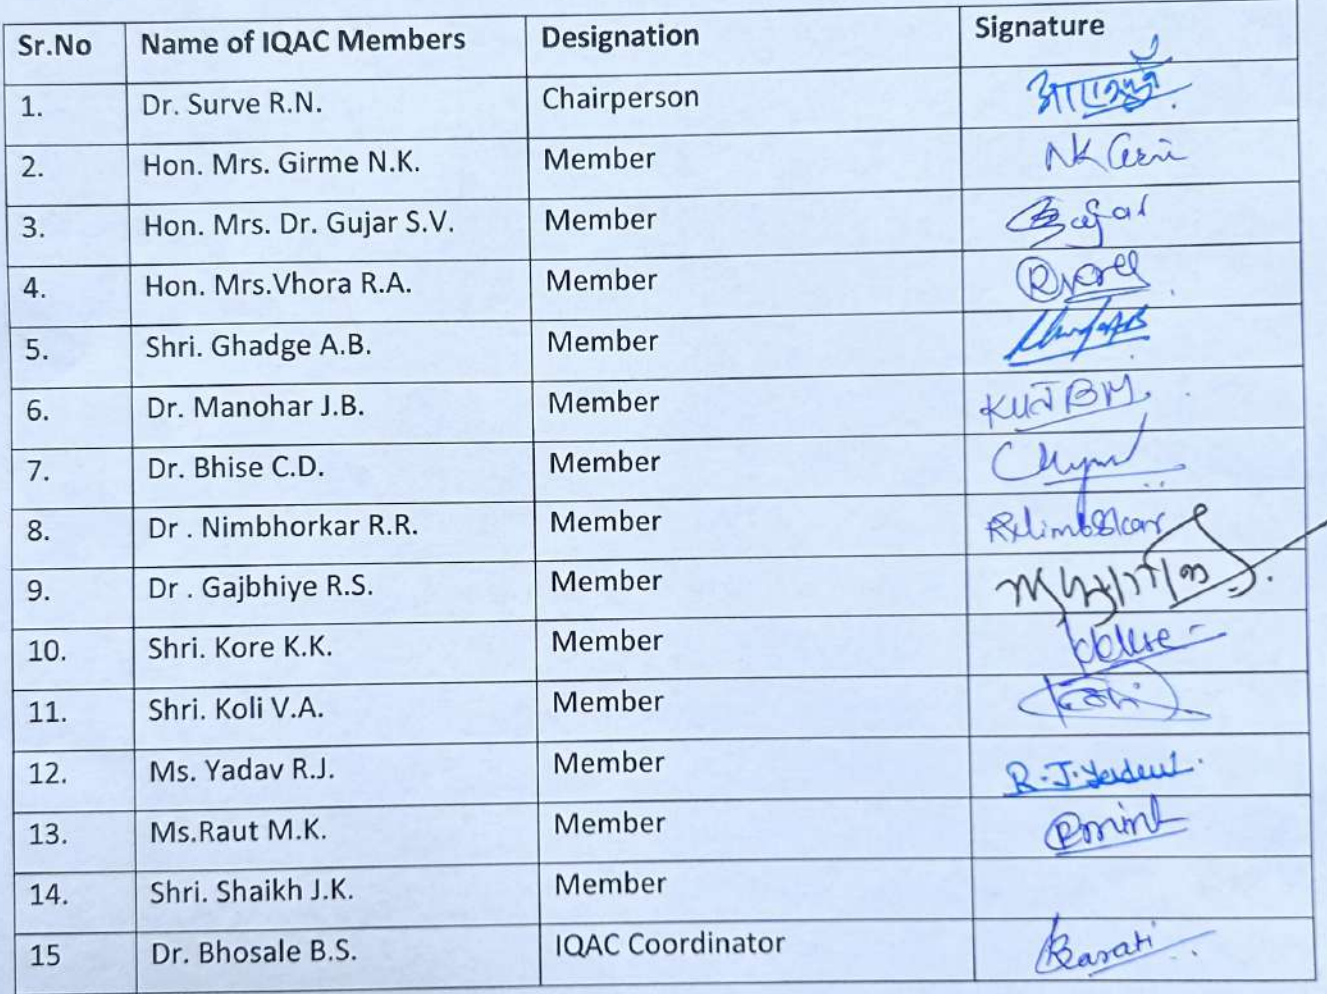 Sr.No Name of IQAC Members Designation Signature
1. Dr. Surve R.N. Chairperson
2. Hon. Mrs. Girme N.K. Member
3. Hon. Mrs. Dr. Gujar S.V. Member
4. Hon. Mrs.Vhora R.A. Member
5. Shri. Ghadge A.B. Member
6. Dr. Manohar J.B. Member
7. Dr. Bhise C.D. Member
8. Dr . Nimbhorkar R.R. Member
9. Dr . Gajbhiye R.S. Member
10. Shri. Kore K.K. Member
11. Shri. Koli V.A. Member
12. Ms. Yadav R.J. Member
13. Ms.Raut M.K. Member
14. Shri. Shaikh J.K. Member
15 Dr. Bhosale B.S. IQAC Coordinator